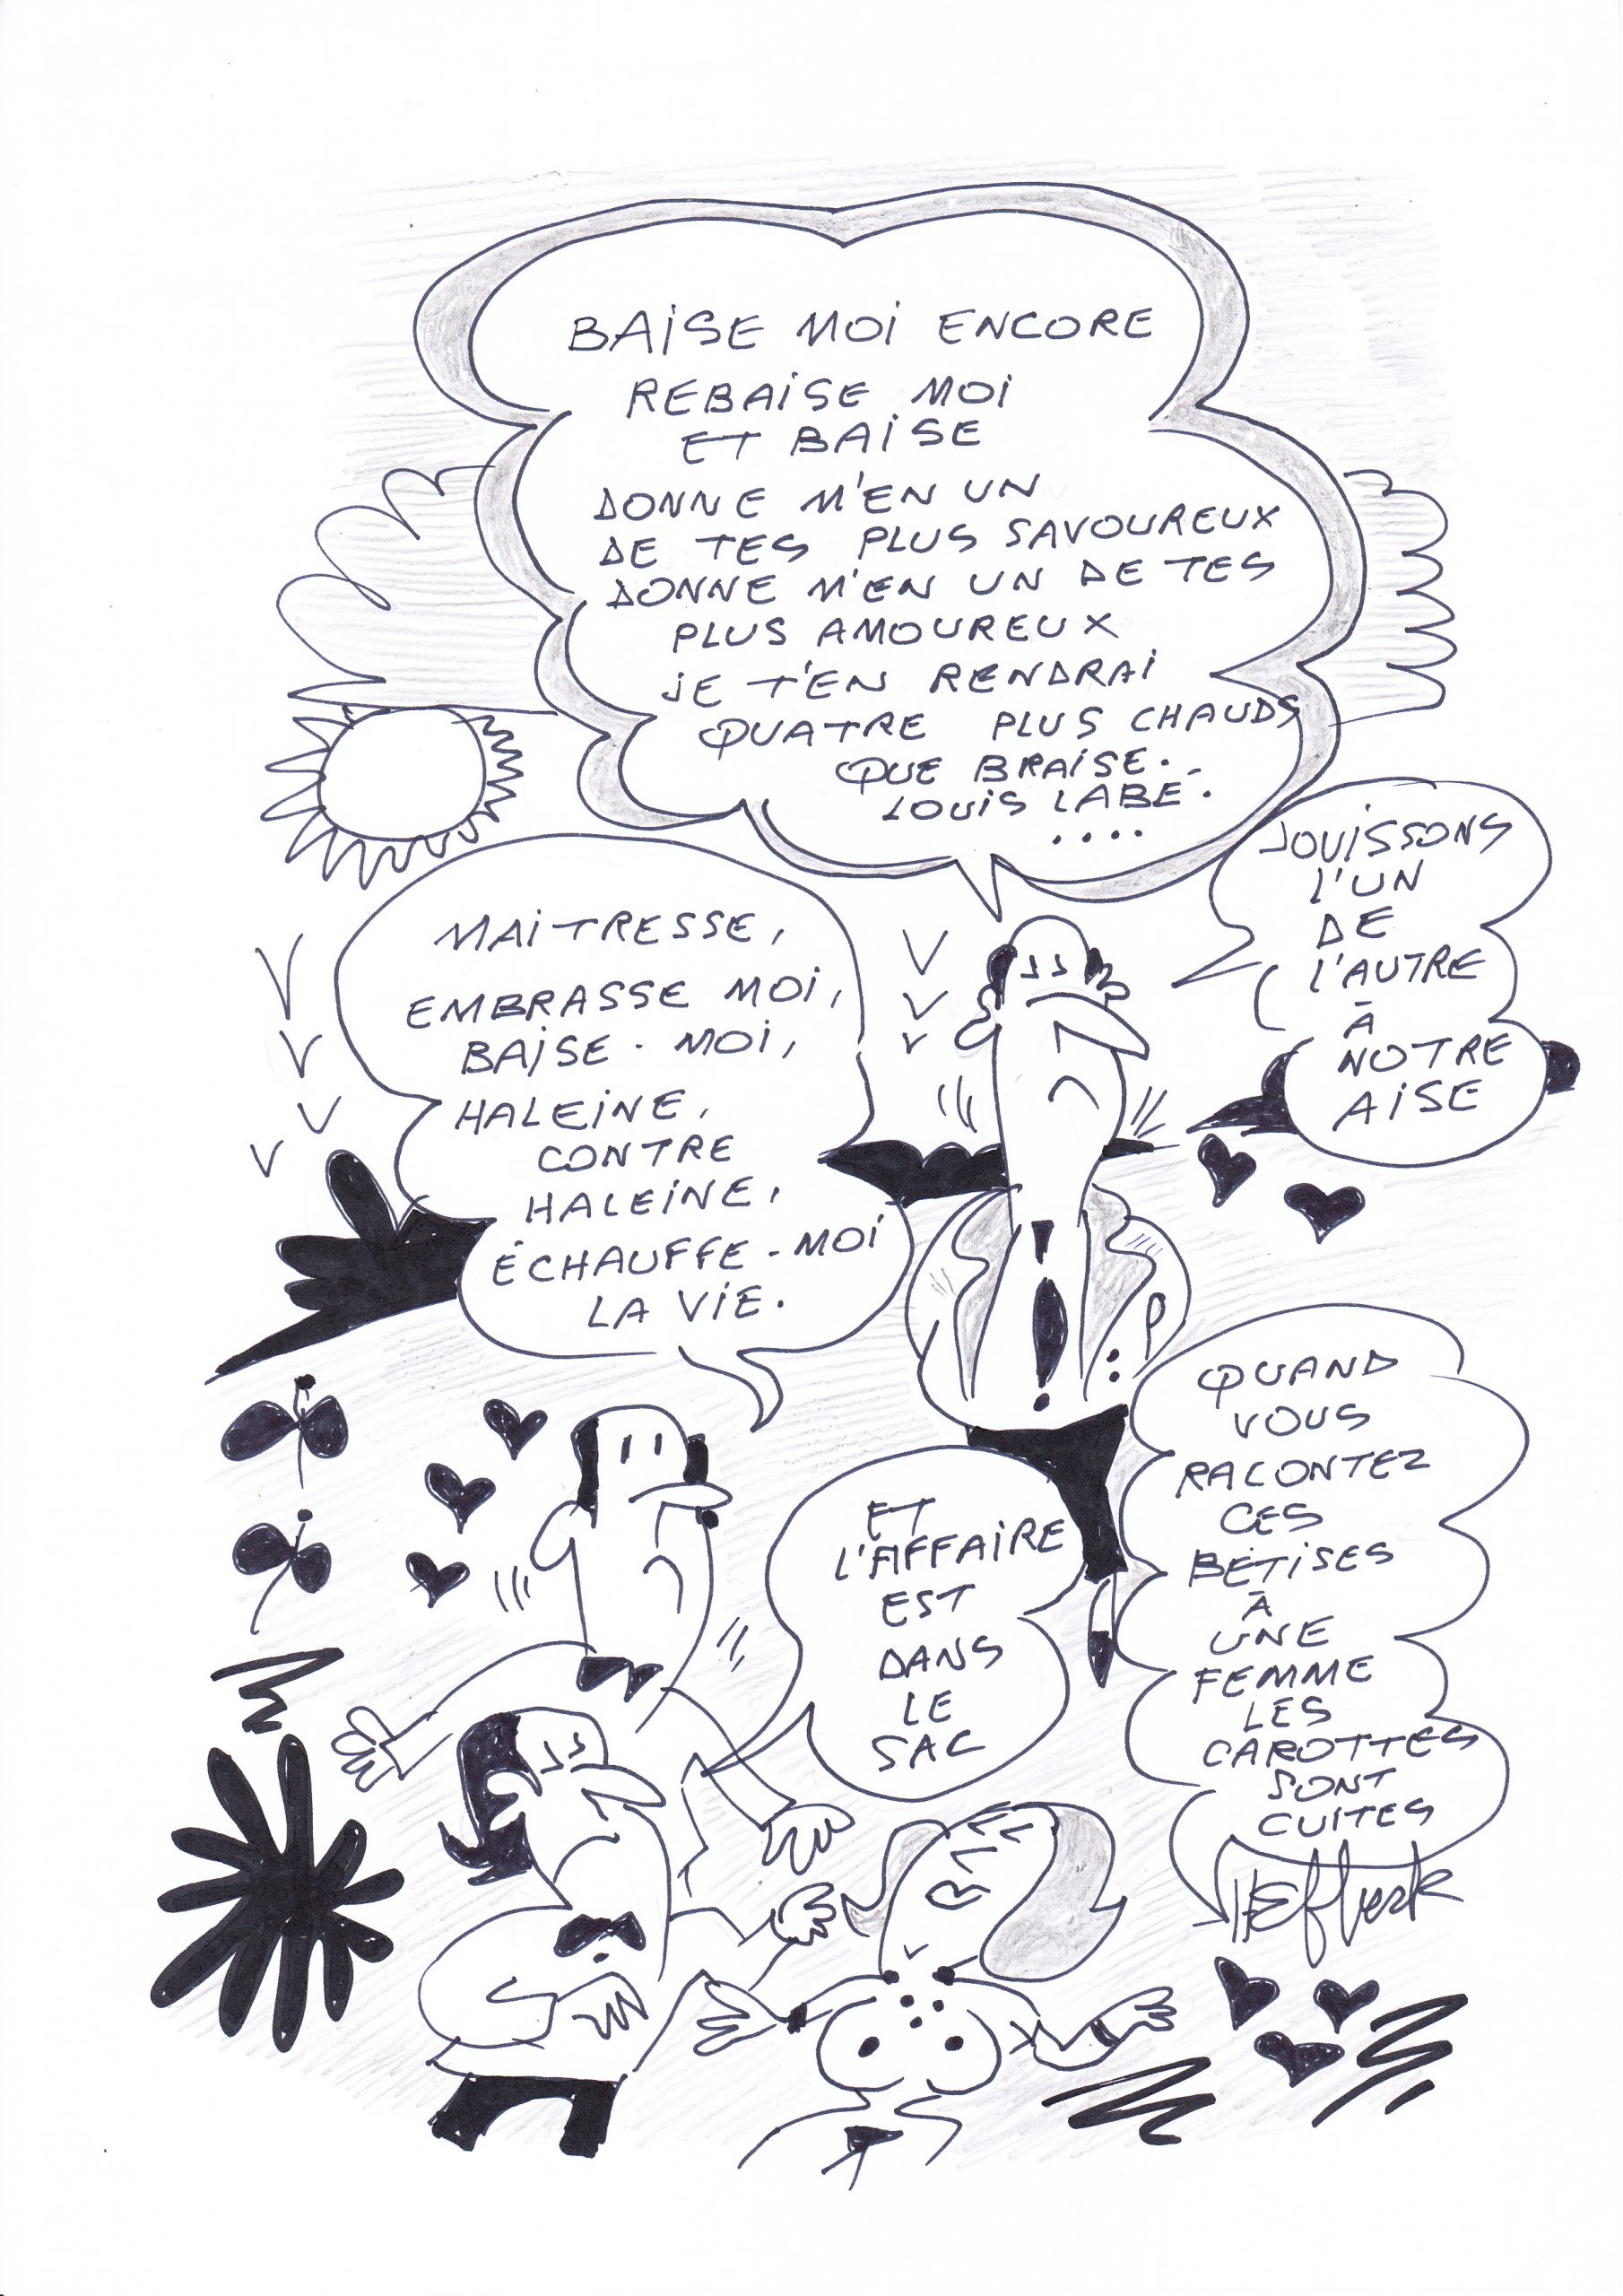 BAISE MOI ENCORE
REBAISE MOI
ET BAISE
DONNE M'EN UN
DE TES PLUS SAVOUREUX
DONNE M'EN UN DE TES
PLUS AMOUREUX
JE T'EN RENDRAI
QUATRE PLUS CHAUDS
QUE BRAISE.
LOUIS LABÉ.
....
JOUISSONS
L'UN
DE
L'AUTRE
À
NOTRE
AISE
MAITRESSE,
EMBRASSE MOI,
BAISE-MOI,
HALEINE,
CONTRE
HALEINE,
ÉCHAUFFE-MOI
LA VIE.
QUAND
VOUS
RACONTEZ
CES
BÉTISES
À
UNE
FEMME
LES
CAROTTES
SONT
CUITES
ET
L'AFFAIRE
EST
DANS
LE
SAC